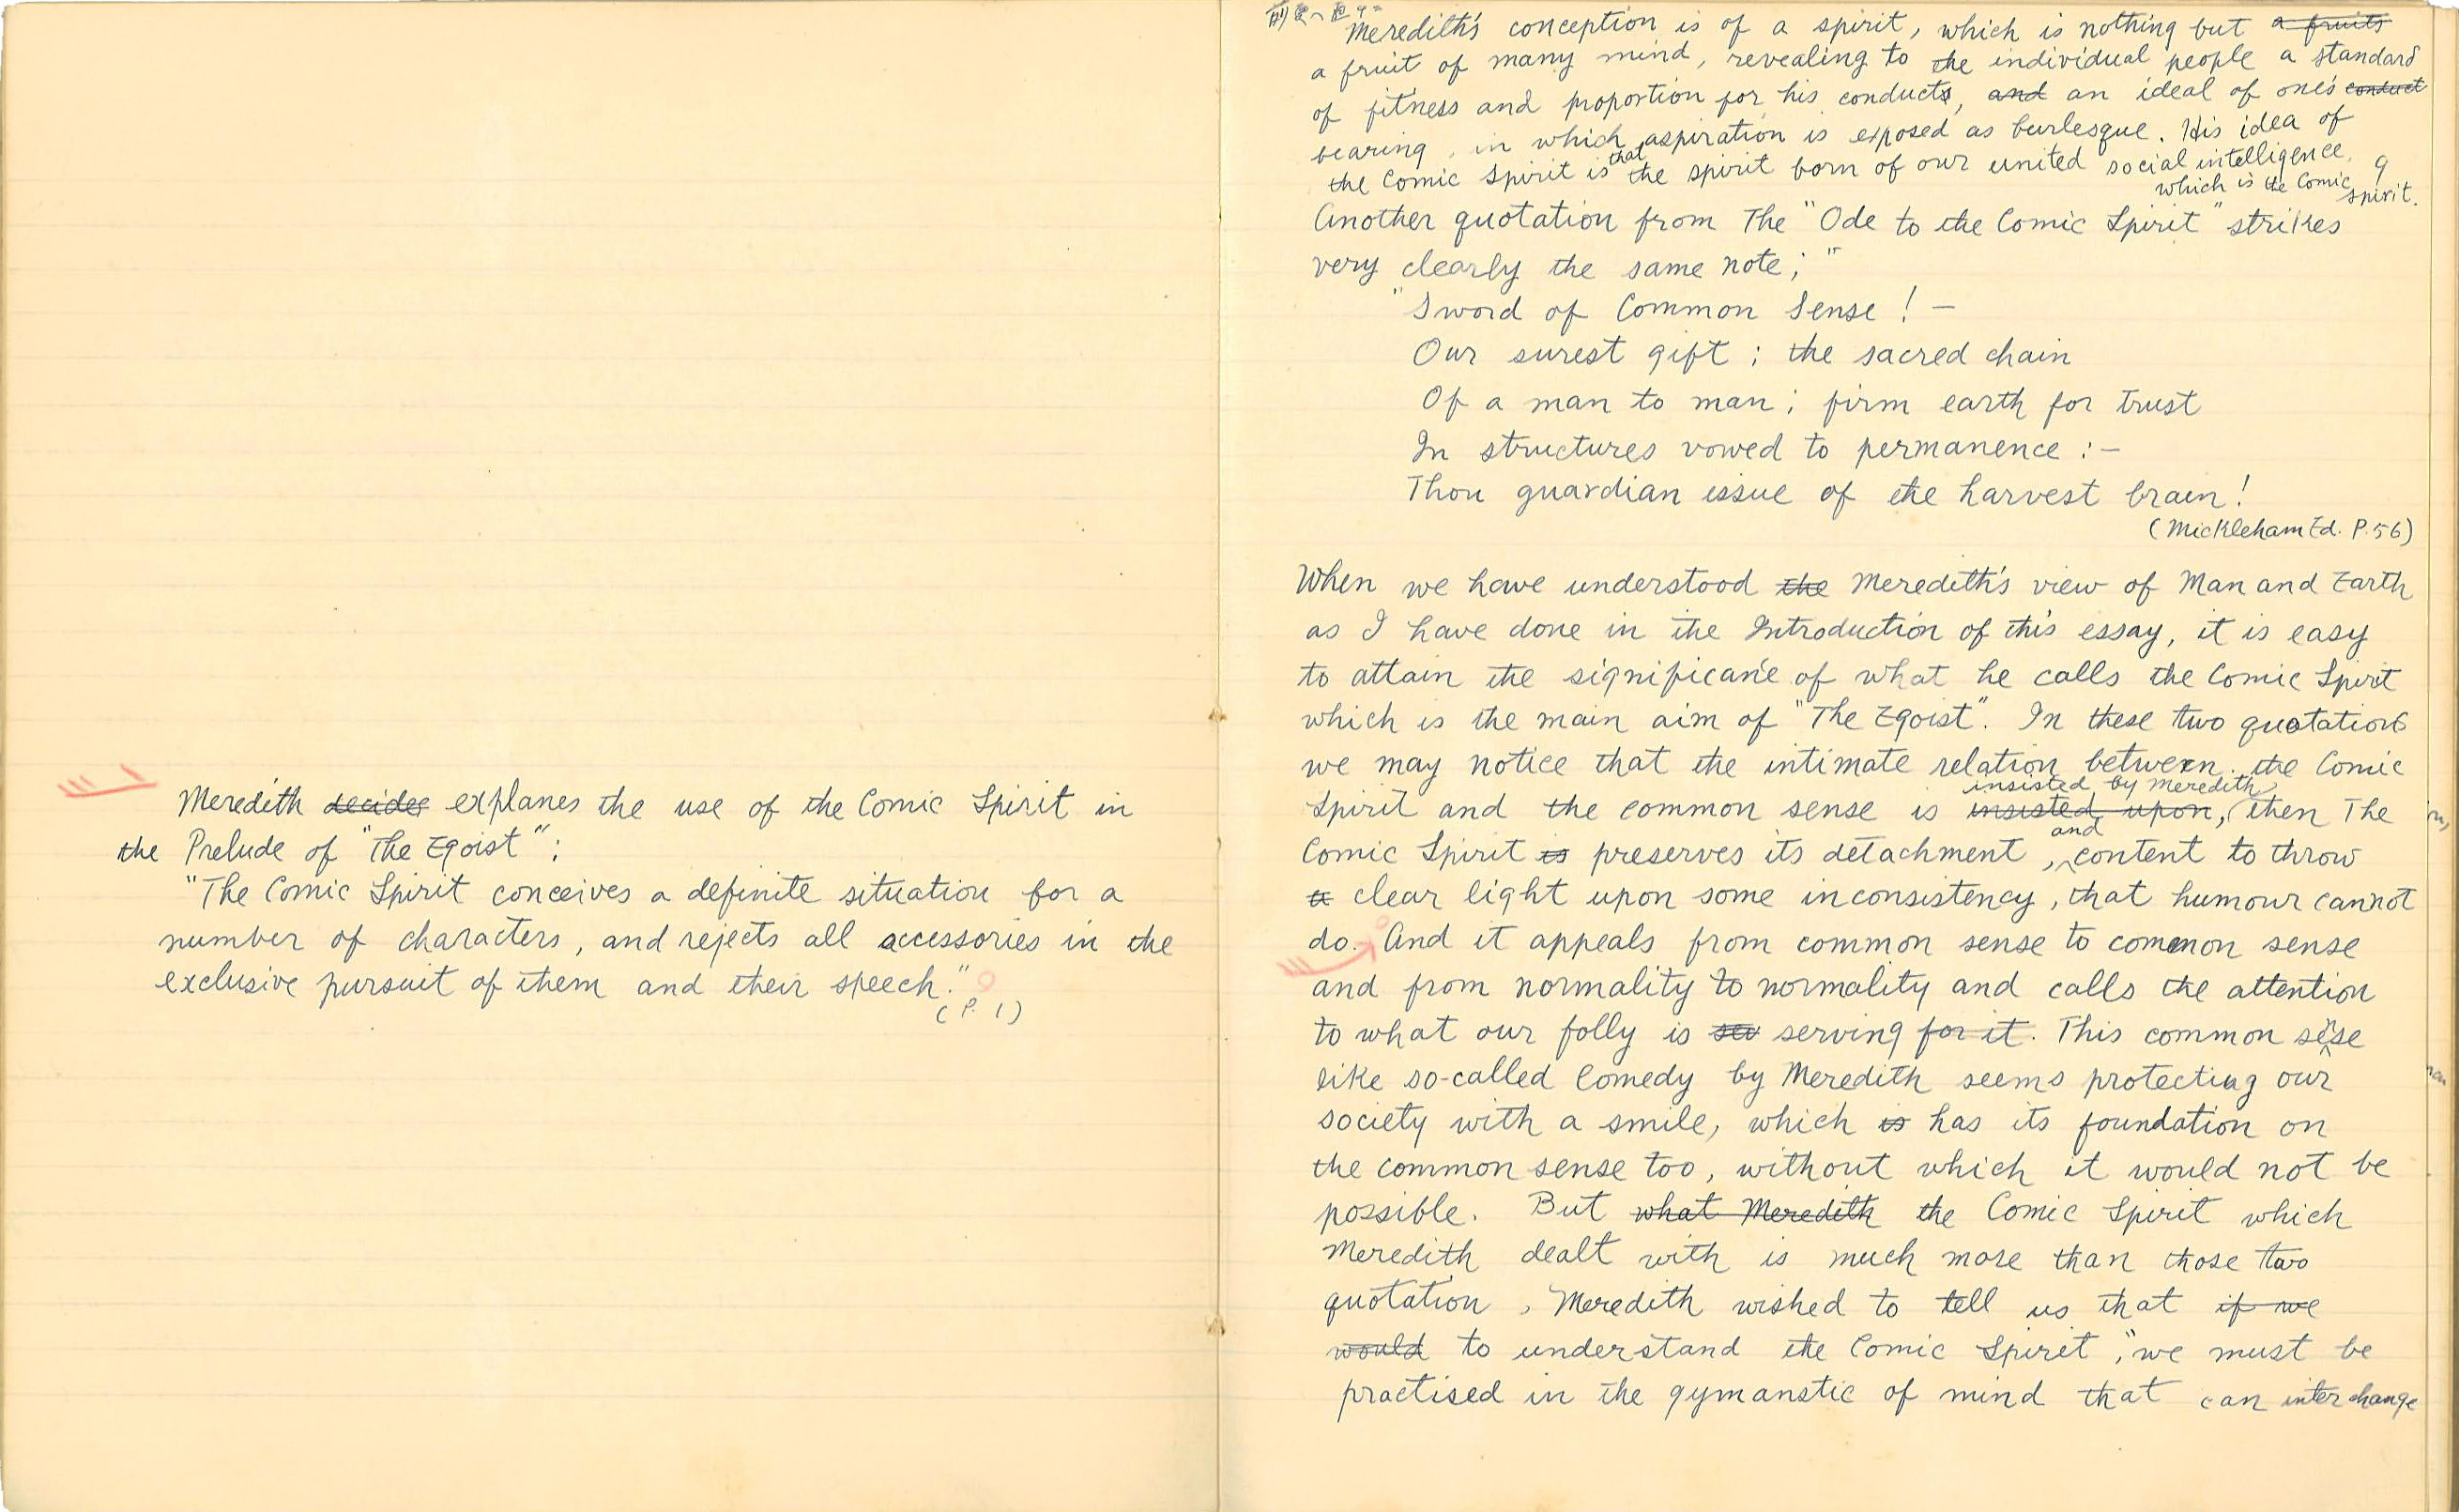 Meredith decides explanes the use of the Comic Spirit in
the Prelude of "The Egoist":
"The Comic Spirit conceives a definite situation for a
number of characters, and rejects all accessories in the
exclusive pursuit of them and their speech."
(P. 1)
Meredith's conception is of a spirit, which is nothing but a fruits
a fruit of many mind, revealing to the individual people a standard
of fitness and proportion for his conducts, and an ideal of one's conduct
bearing, in which aspiration is exposed as burlesque. His idea of
the Comic Spirit is that the spirit born of our united social intelligence,
which is the Comic spirit.
Another quotation from The "Ode to the Comic Spirit" strikes
very clearly the same note; "
"Sword of Common Sense! —
Our surest gift; the sacred chain
Of a man to man; firm earth for trust
In structures vowed to permanence :—
Thou guardian issue of the harvest brain!
(Mickleham Ed. P. 56)
When we have understood the Meredith's view of Man and Earth
as I have done in the Introduction of this essay, it is easy
to attain the significance of what he calls the Comic Spirit
which is the main aim of "The Egoist". In these two quotations
we may notice that the intimate relation between the Comic
Spirit and the common sense is insisted upon, insisted by Meredith, then The
Comic Spirit is preserves its detachment, and content to throw
a clear light upon some inconsistency, that humour cannot
do. And it appeals from common sense to common sense
and from normality to normality and calls the attention
to what our folly is sev serving for it. This common sense
like so-called Comedy by Meredith seems protecting our
society with a smile, which is has its foundation on
the common sense too, without which it would not be
possible. But what Meredith the Comic Spirit which
Meredith dealt with is much more than those two
quotation, Meredith wished to tell us that if we
would to understand the Comic Spirit, "we must be
practised in the gymanstic of mind that can interchange